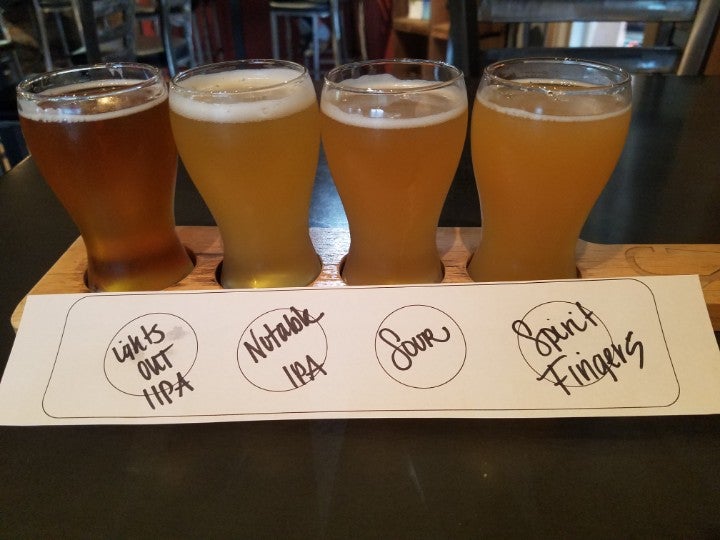 Lights
OUT
IIPA
Notable
IPA
Sour
Spirit
Fingers